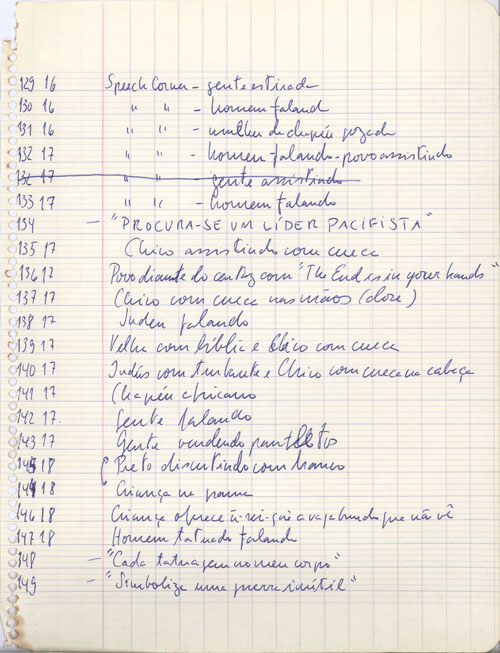 129 16 Speech Corner - gente estirada
130 16 " " - homem faland
131 16 " " - mulher de chapéu gozada
132 17 " " - homem falando - povo assistindo
132 17 " " - gente assistindo
133 17 " " - homem falando
134 - "PROCURA-SE UM LÍDER PACIFISTA"
135 17 Chico assistindo com cueca
136 17 Povo diante do cartaz com "The End is in your hands"
137 17 Chico com cueca nas mãos (close)
138 17 falando
139 17 Velha com bíblia e Chico com cueca
140 17 com turbante e Chico com cueca na cabeça
141 17 Chapéu africano
142 17. Gente falando
143 17 Gente vendendo panfletos
145 18 Preto discutindo com branco
144 18 Criança na grama
146 18 Criança oferece a vagabundo que não vê
147 18 Homem tatuado falando
148 - "Cada tatuagem no meu corpo"
149 - "Simboliza uma guerra inútil"